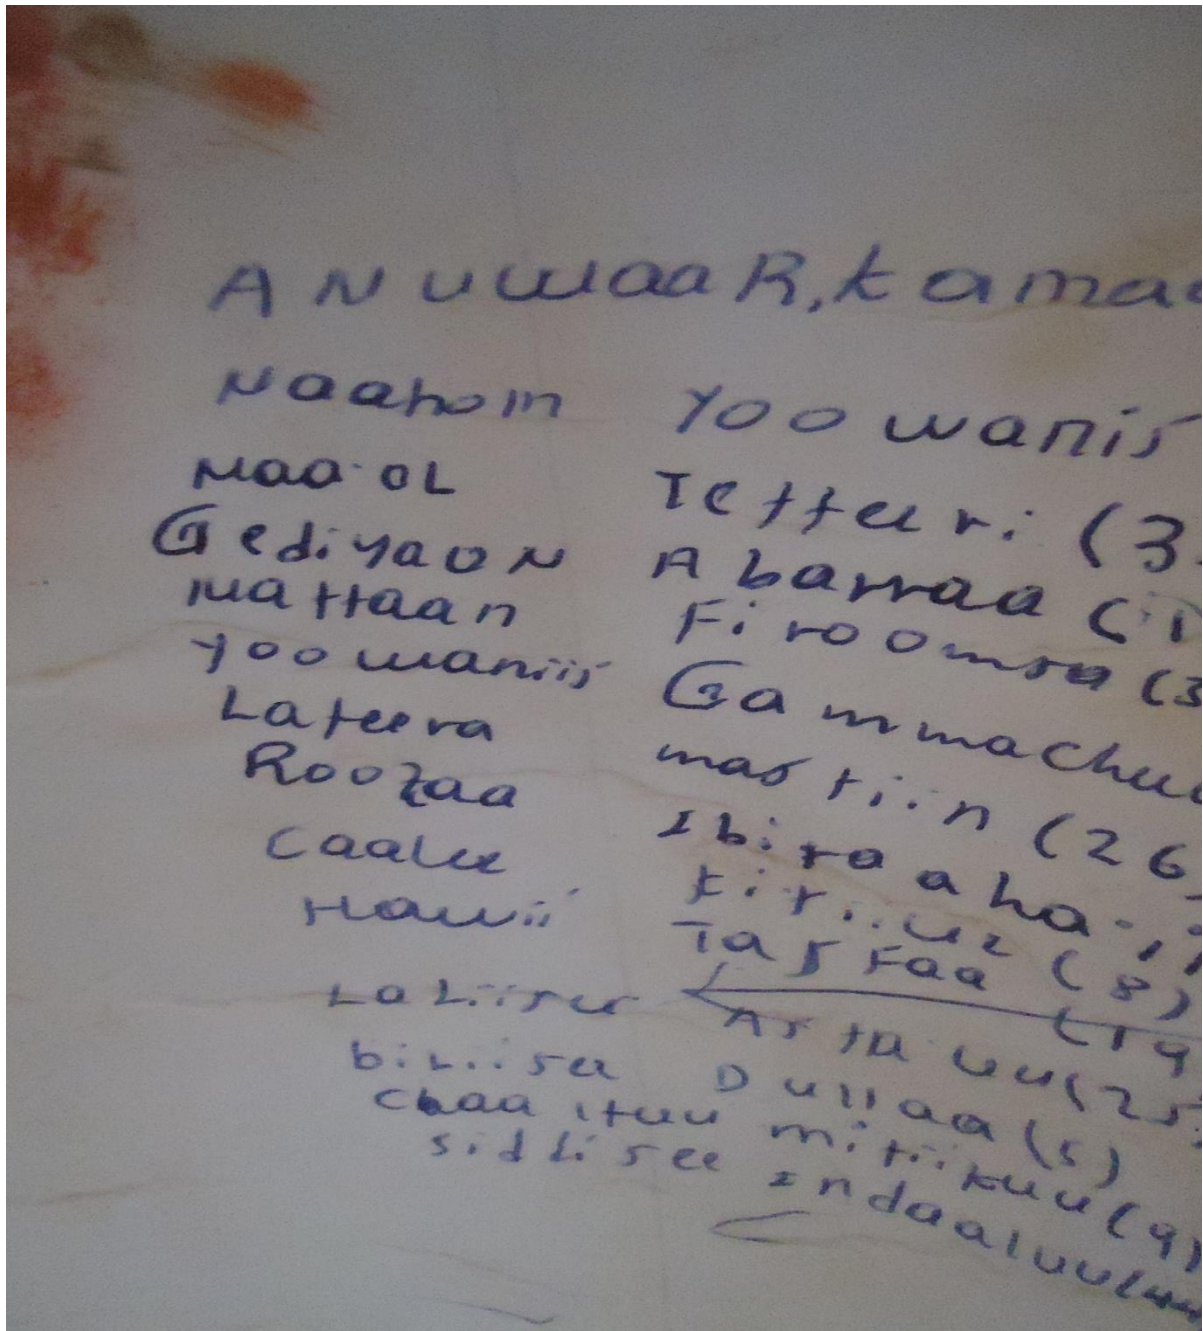 ANUWaaR, Kama
Naahom Yoowanis
Naa'oL Tetteeri (3
GediyaoN Abarraa (1
Mattaan Firoomsa (3
Yoowaniis Gammachuu
Lateera mastiin (26
Roozaa Ibiraahai
Caalee Kitiiuz (8)
Hawii Tasfaa (19
Laliisee Astauu (25
biliisee Dullaa (5)
Chaaltuu mitiikuu (9)
siddisee Indaaluu (44